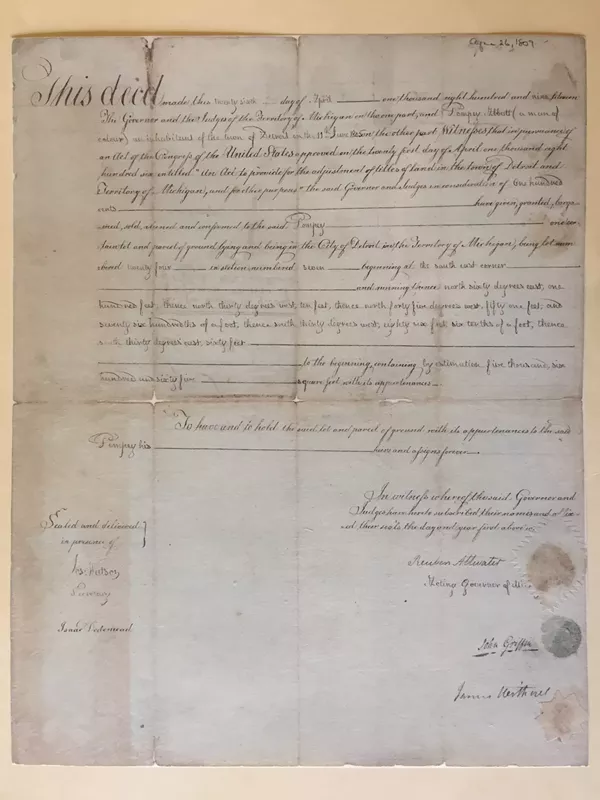 Apr 26, 1809
This deed made this twenty sixth day of April one thousand eight hundred and nine between
The Governor and the Judges of the Territory of Michigan in the one part, and Pompey Abbott (a man of
colour) an inhabitant of the town of Detroit on the 11th June 1805 in the other part Witnesses that in pursuance of
an Act of the Congress of the United States approved on the twenty first day of April one thousand eight
hundred six entitled "An Act to provide for the adjustment of titles of land in the town of Detroit and
Territory of Michigan, and for other purposes" the said Governor and Judges in consideration of one hundred
cents have given, granted, barga-
ined, sold, aliened and confirmed to the said Pompey one cer-
tain lot and parcel of ground lying and being in the City of Detroit in the Territory of Michigan, being lot num-
bered twenty four in section numbered seven beginning at the south east corner
and running thence north sixty degrees east, one
hundred feet, thence north thirty degrees west ten feet, thence north forty five degrees west, fifty one feet, and
seventy six hundredths of a foot, thence south thirty degrees west, eighty six feet, six tenths of a foot, thence
south thirty degrees east, sixty feet
to the beginning, containing by estimation five thousand, six
hundred and sixty five square feet with its appurtenances
To have and to hold the said lot and parcel of ground with its appurtenances to the said
Pompey his heirs and assigns forever
In witness whereof the said Governor and
Judges have hereto subscribed their names and affix-
ed their seals the day and year first above
Sealed and delivered
in presence of
Jos. Watson
Secretary
Isaac
Reuben Attwater
Acting Governor of
John Griffin
James Witherell